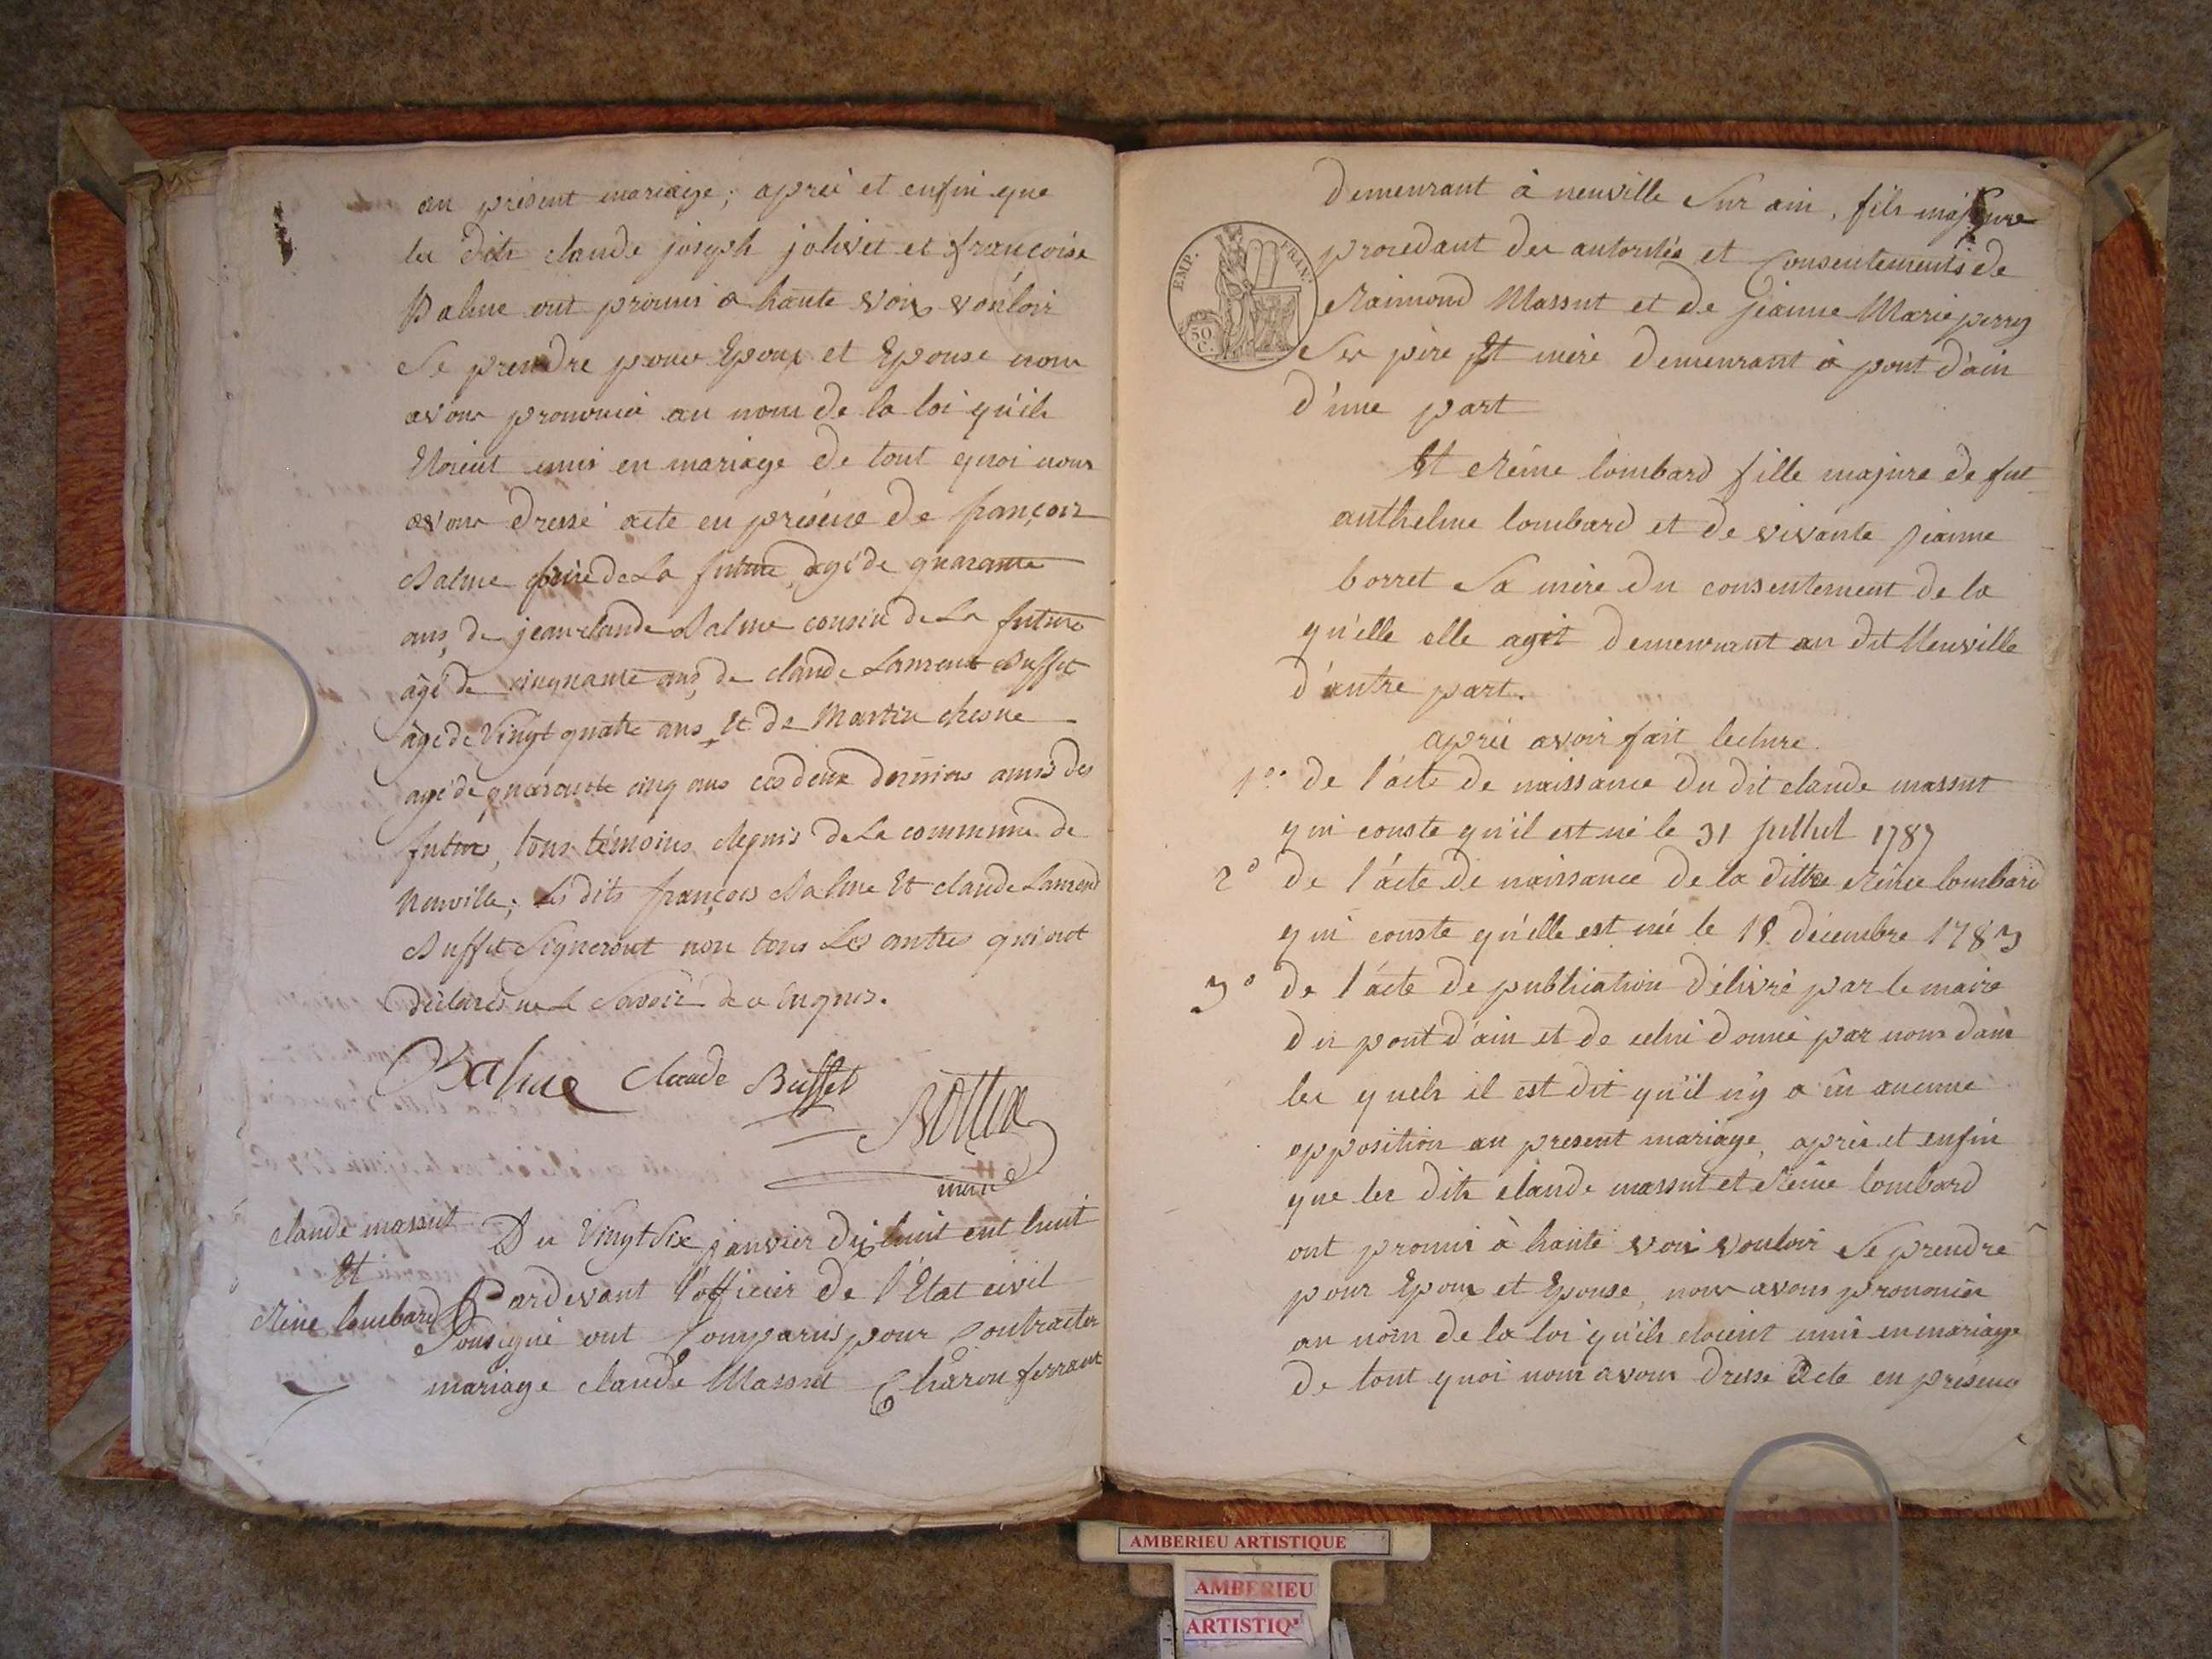 au présent mariage; aprés et enfin que
les dits claude joseph jolivet et françoise
Balme ont promis a haute voix vouloir
Se prendre pour Epoux et Epouse nous
avons prononcé au nom de la loi qu'ils
Etoient unis en mariage de tout quoi nous
avons dressé acte en présence de françois
Balme frère de La future, agé de quarante
ans, de jean claude Balme cousin de La future
âgé de cinquante ans, de claude Laurent Buffet
âgé de Vingt quatre ans, Et de Martin chesne
agé de quarante cinq ans ces deux derniers amis des
futurs, tous témoins requis de La commune de
Neuville; les dits françois Balme Et claude Laurend
Buffet Signeront non tous Les autres qui ont
déclarés ne Le Savoir de ce Enquis.
Balme claude Buffet
maire
claude massut
Et
Réine lombard
Du Vingt Six janvier dix huit cent huit
Pardevant l'officier de l'Etat civil
Sousigné ont Comparus pour Contracter
mariage claude Massut Charon ferrant
EMP. FRAN.
50
C.
demeurant à neuville Sur ain, fils majeure
procedant des autorités et Consentements de
Raimond Massut et de jeanne Marie perry
Ses père Et mère demeurant à pont d'ain
d'une part
Et Réine lombard fille majure de fut
anthelme lombard et de vivante jeanne
borret Sa mère du consentement de la
qu'elle elle agit demeurant au dit Neuville
d'autre part.
aprés avoir fait lecture.
1o. de l'acte de naissance du dit claude massut
qui conste qu'il est né le 31 juillet 1787
2o de l'acte de naissance de la ditte Réine lombard
qui conste qu'elle est né le 18 décembre 1783
3o de l'acte de publication délivré par le maire
du pont d'ain et de celui donné par nous dans
les quels il est dit qu'il n'y a eu aucune
opposition au present mariage, aprés et enfin
que les dits claude massut et Réine lombard
ont promis à haute voix vouloir Se prendre
pour Epoux et Epouse, nous avons prononcés
au nom de la loi qu'ils étoient unis en mariage
de tout quoi nous avons dressé acte en présence
AMBERIEU ARTISTIQUE
AMBERIEU
ARTISTIQ